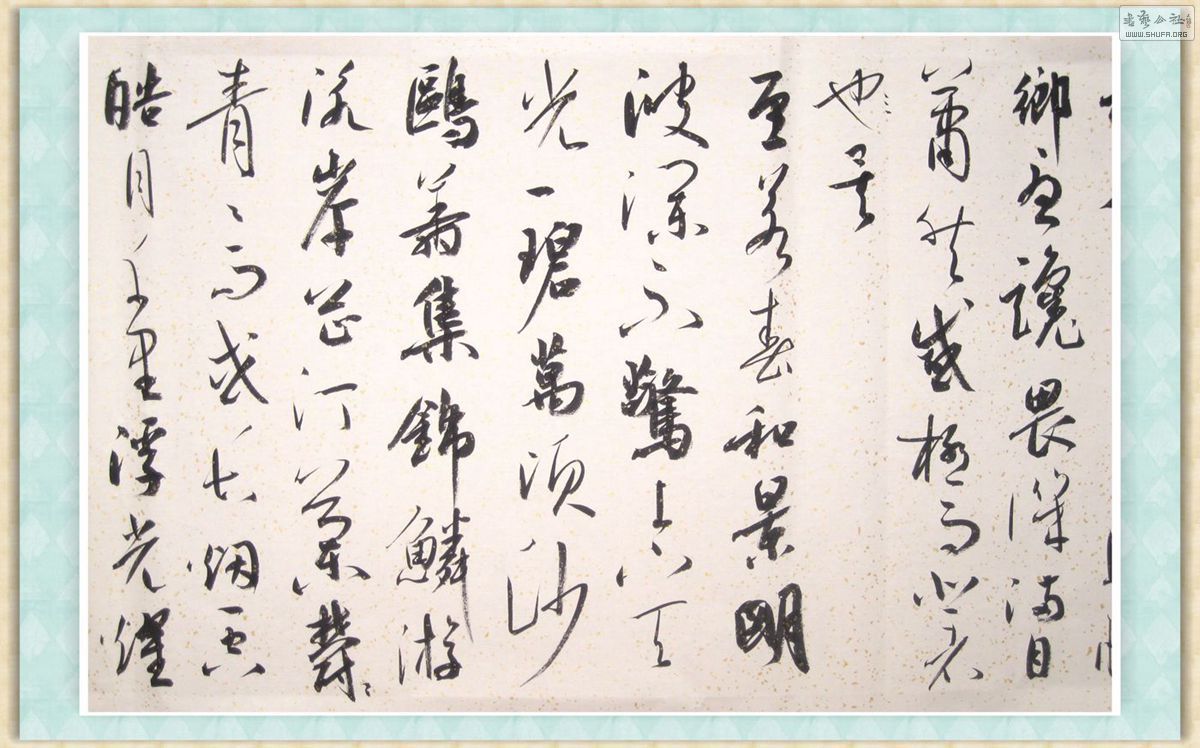 鄉憂讒畏譏滿目
蕭然感極而悲者
也矣
至若春和景明
波瀾不驚上下天
光一碧萬頃沙
鷗翔集錦鱗游
泳岸芷汀蘭鬱〻
青〻而或長烟一空
皓月千里浮光燿
書藝公社
WWW.SHUFA.ORG